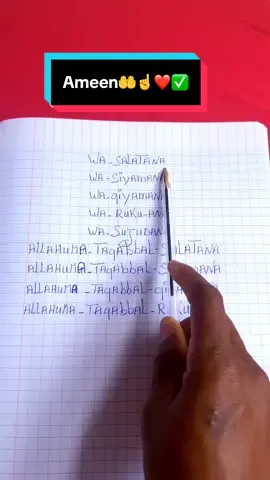 Ameen🤲☝️❤️✅
WA-SALATANA
WA-SiYAMANA
WA-qiYAMAN
WA-RUKU-AN
WA-SUJUDAN
ALLAHUMA-TAqAbbAL-SALATANA
ALLAHUMA-TAqAbbAL-
ALLAHUMA-TAqAbbAL-
ALLAHUMA-TAqAbbAL-R